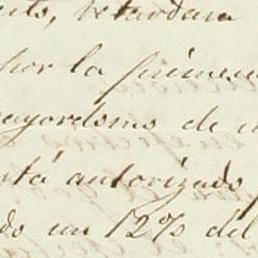 retardara
por la primera
mayordomo de
está autorizado
do un 12% del